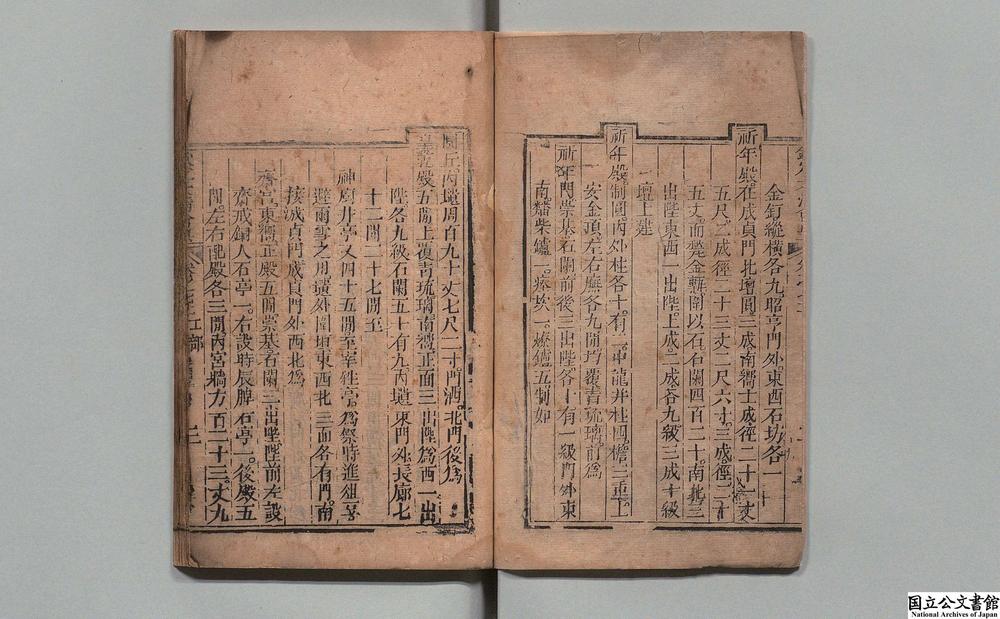 金釘縱橫各九昭亨門外。東西石坊各一
祈年殿。在成貞門北壇圓三成南嚮士成徑二十一丈
五尺。二成徑二十三丈二尺六寸。三成徑二十
五丈。面甃金甎圍以石石闌四百二十。南北三
出陛。東西一出陛。上成二成各九級。三成十級
壇上建
祈年殿制圓。內外柱各十有二中龍井柱四檐三重。上
安金頂左右廡各九間均覆青琉璃。前爲
祈年門崇基石闌前後三出陛各十有一級門外東
南。燔柴爐一。瘞坎一。燎爐五。制如
圜丘。內壝周百九十丈七尺二寸門四。北門後爲
皇乾殿五間上覆青琉璃南嚮正面三出陛爲西一出
陛各九級石闌五十有九。內壝東門外。長廊七
十二間二十七間至
神廚井亭又四十五間至宰牲亭爲祭時進俎
避雨雪之用壝外圍垣東西北三面各有門。南
接成貞門成貞門外西北爲
齋宮。東嚮正殿五間崇基石闌三出陛陛前左設
齋戒銅人石亭一。右設時辰牌石亭一。後殿五
間。左右配殿各三間內宮牆方百二十三丈九
国立公文書館
National Archives of Japan